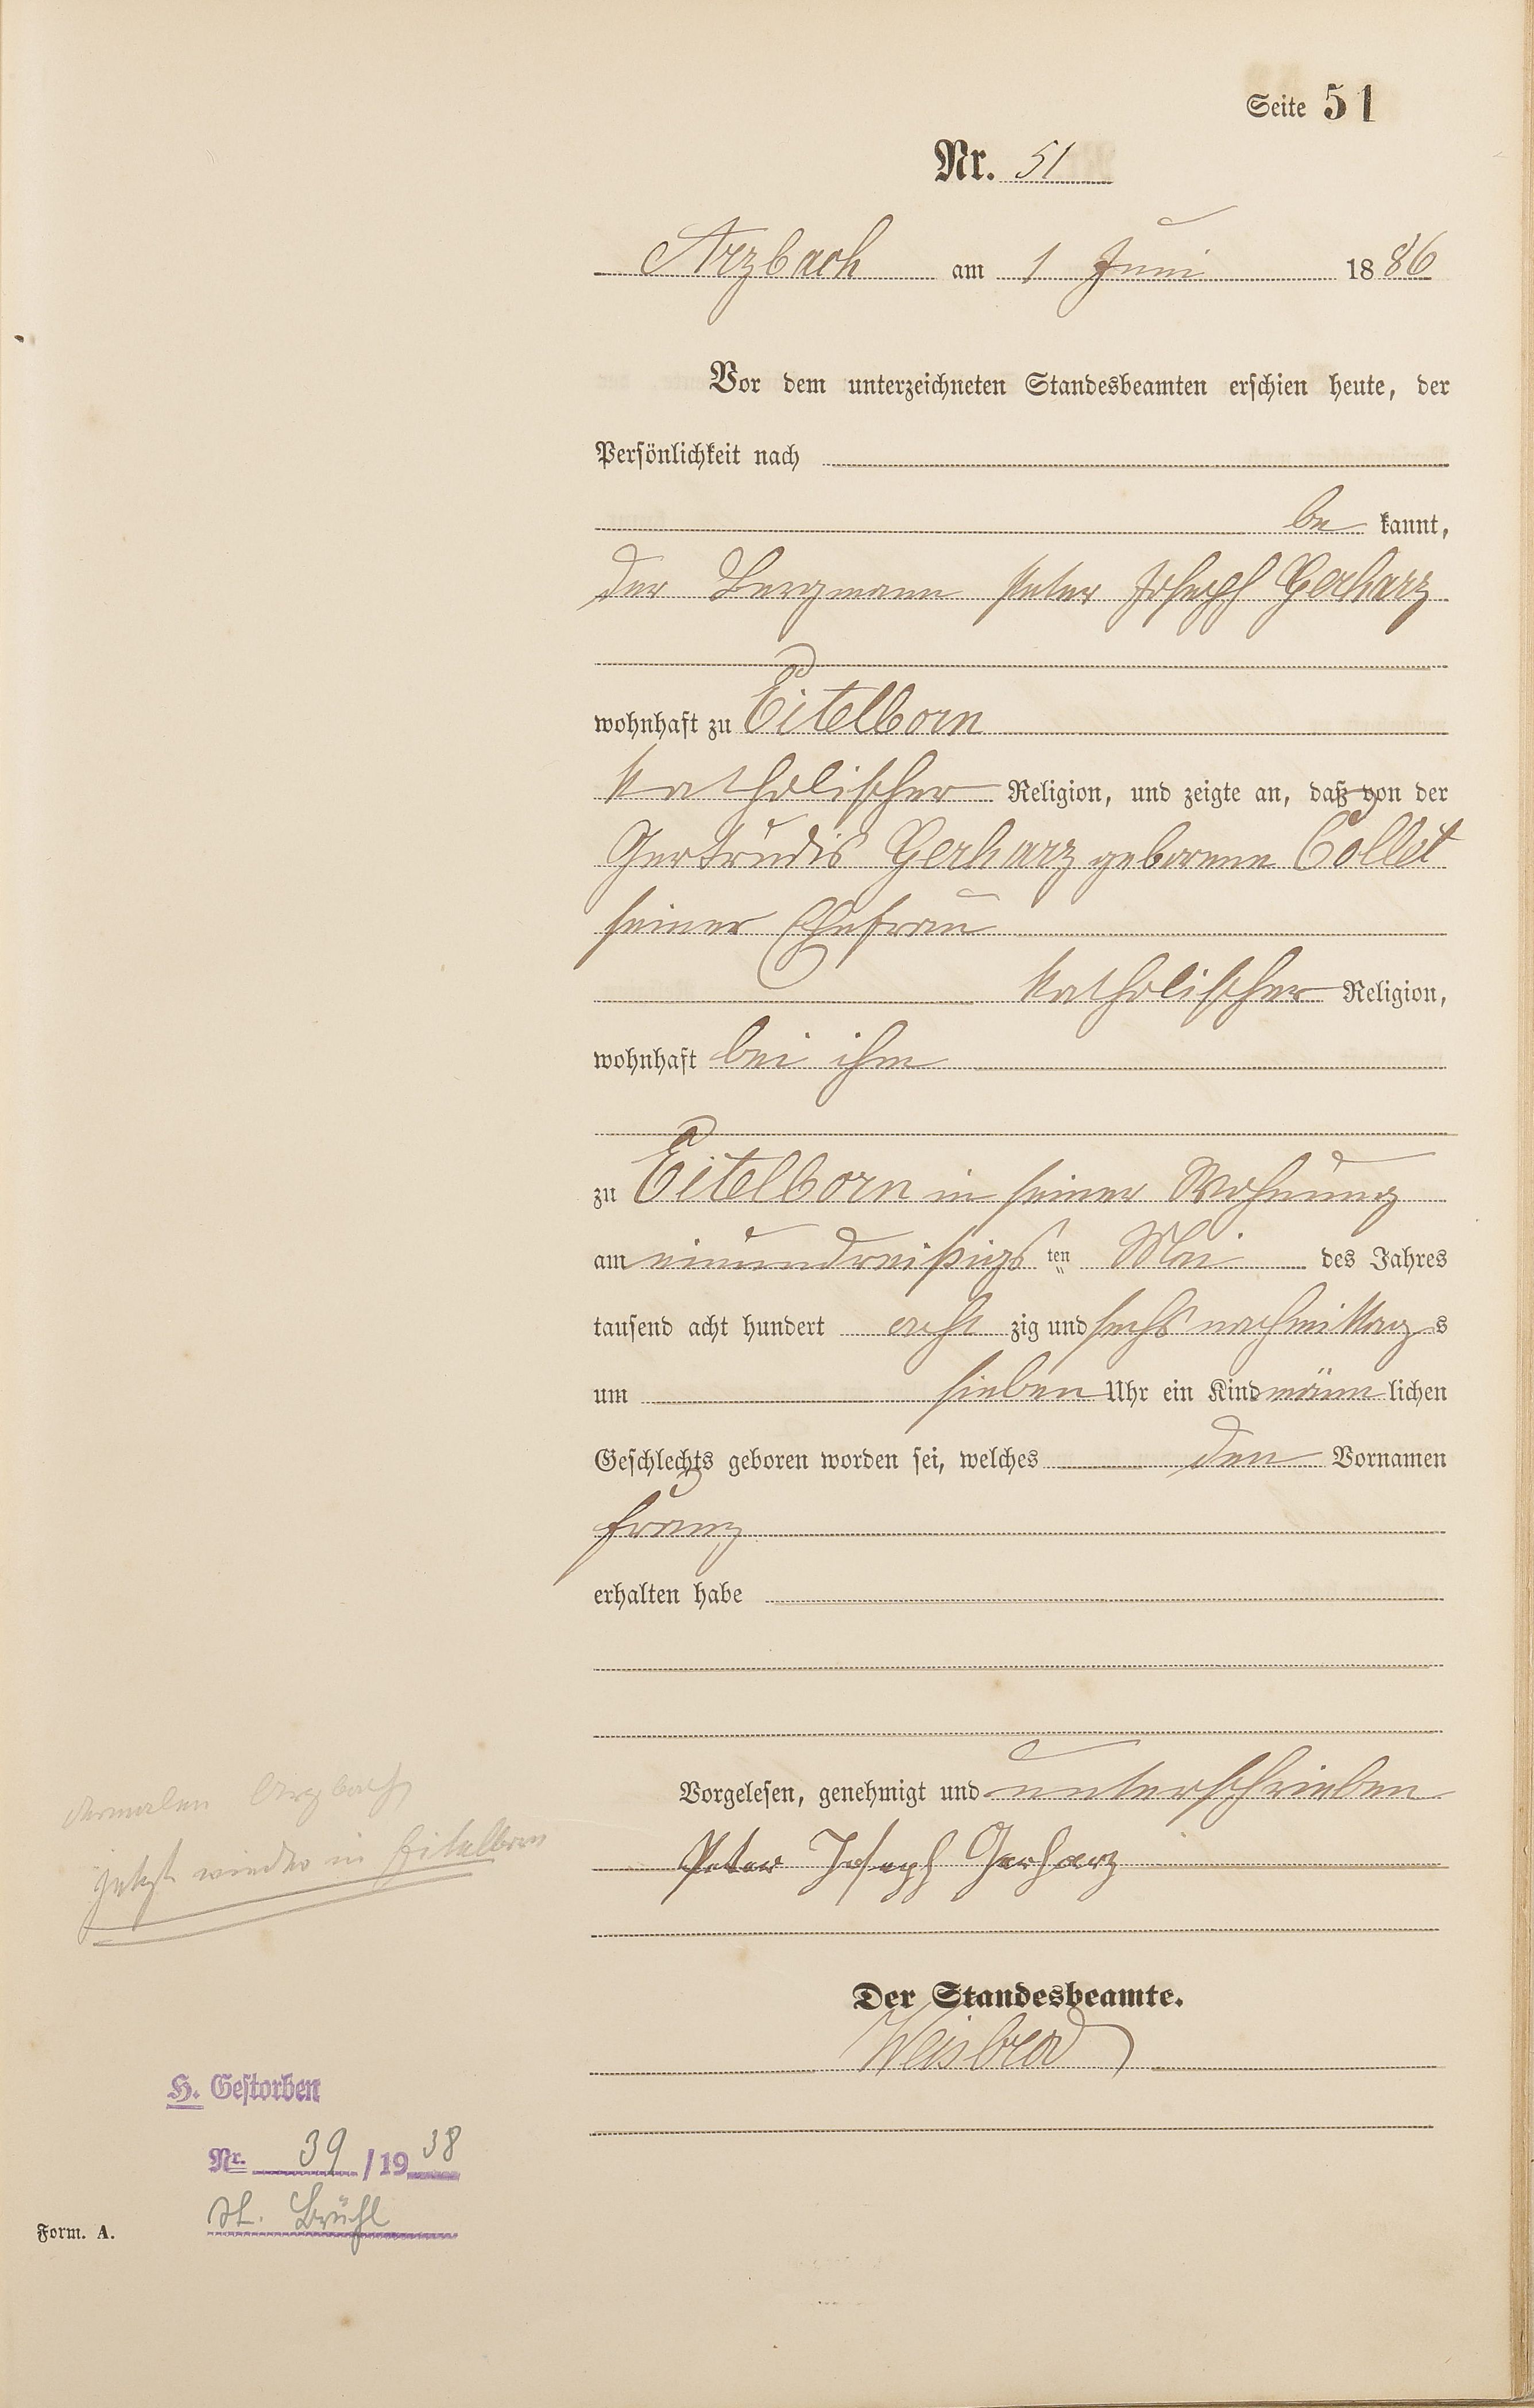 Seite 51
Nr. 51
Arzbach am 1 Juni 1886
Vor dem unterzeichneten Standesbeamten erschien heute, der
Persönlichkeit nach
be kannt,
der Bergmann Peter Joseph Gerharz
wohnhaft zu Eitelborn
katholischer Religion, und zeigte an, daß von der
Gertrudis Gerharz geborene Collet
seiner Ehefrau
katholischer Religion,
wohnhaft bei ihm
zu Eitelborn in seiner Wohnung
am einunddreißigs ten Mai des Jahres
tausend acht hundert acht zig und sechs nachmittags
um sieben Uhr ein Kind männ lichen
Geschlechts geboren worden sei, welches den Vornamen
Franz
erhalten habe
Vorgelesen, genehmigt und unterschrieben
Peter Joseph Gerharz
Der Standesbeamte.
Weisbrod
dermalen Arzbach
jetzt wieder in Eitelborn
H. Gestorben
Nr. 39 /1938
St. Brühl
Form. A.